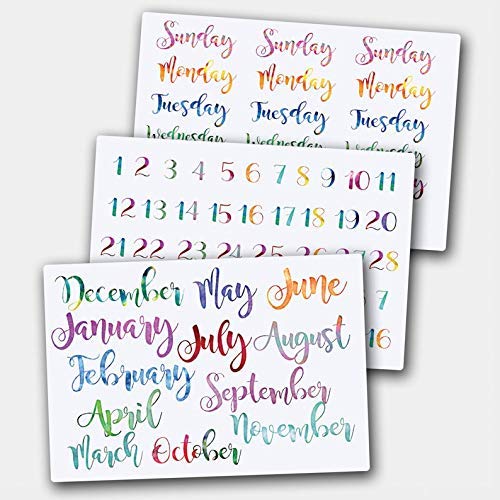 Sunday Sunday Sunday
Monday Monday Monday
Tuesday Tuesday Tuesday
Wednesday Wednesday
1 2 3 4 5 6 7 8 9 10 11
12 13 14 15 16 17 18 19 20
21 22 23 24 25 26 27 28
7
16
December May June
January July August
February September
April November
March October